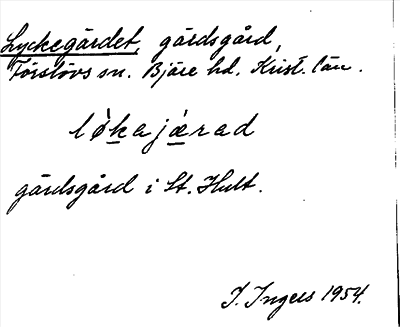 Lyckegärdet, gärdsgård,
Förslövs sn. Bjäre hd. Krist. län.
lǿkajærad
gärdsgård i St. Hult.
I. Ingers 1954.